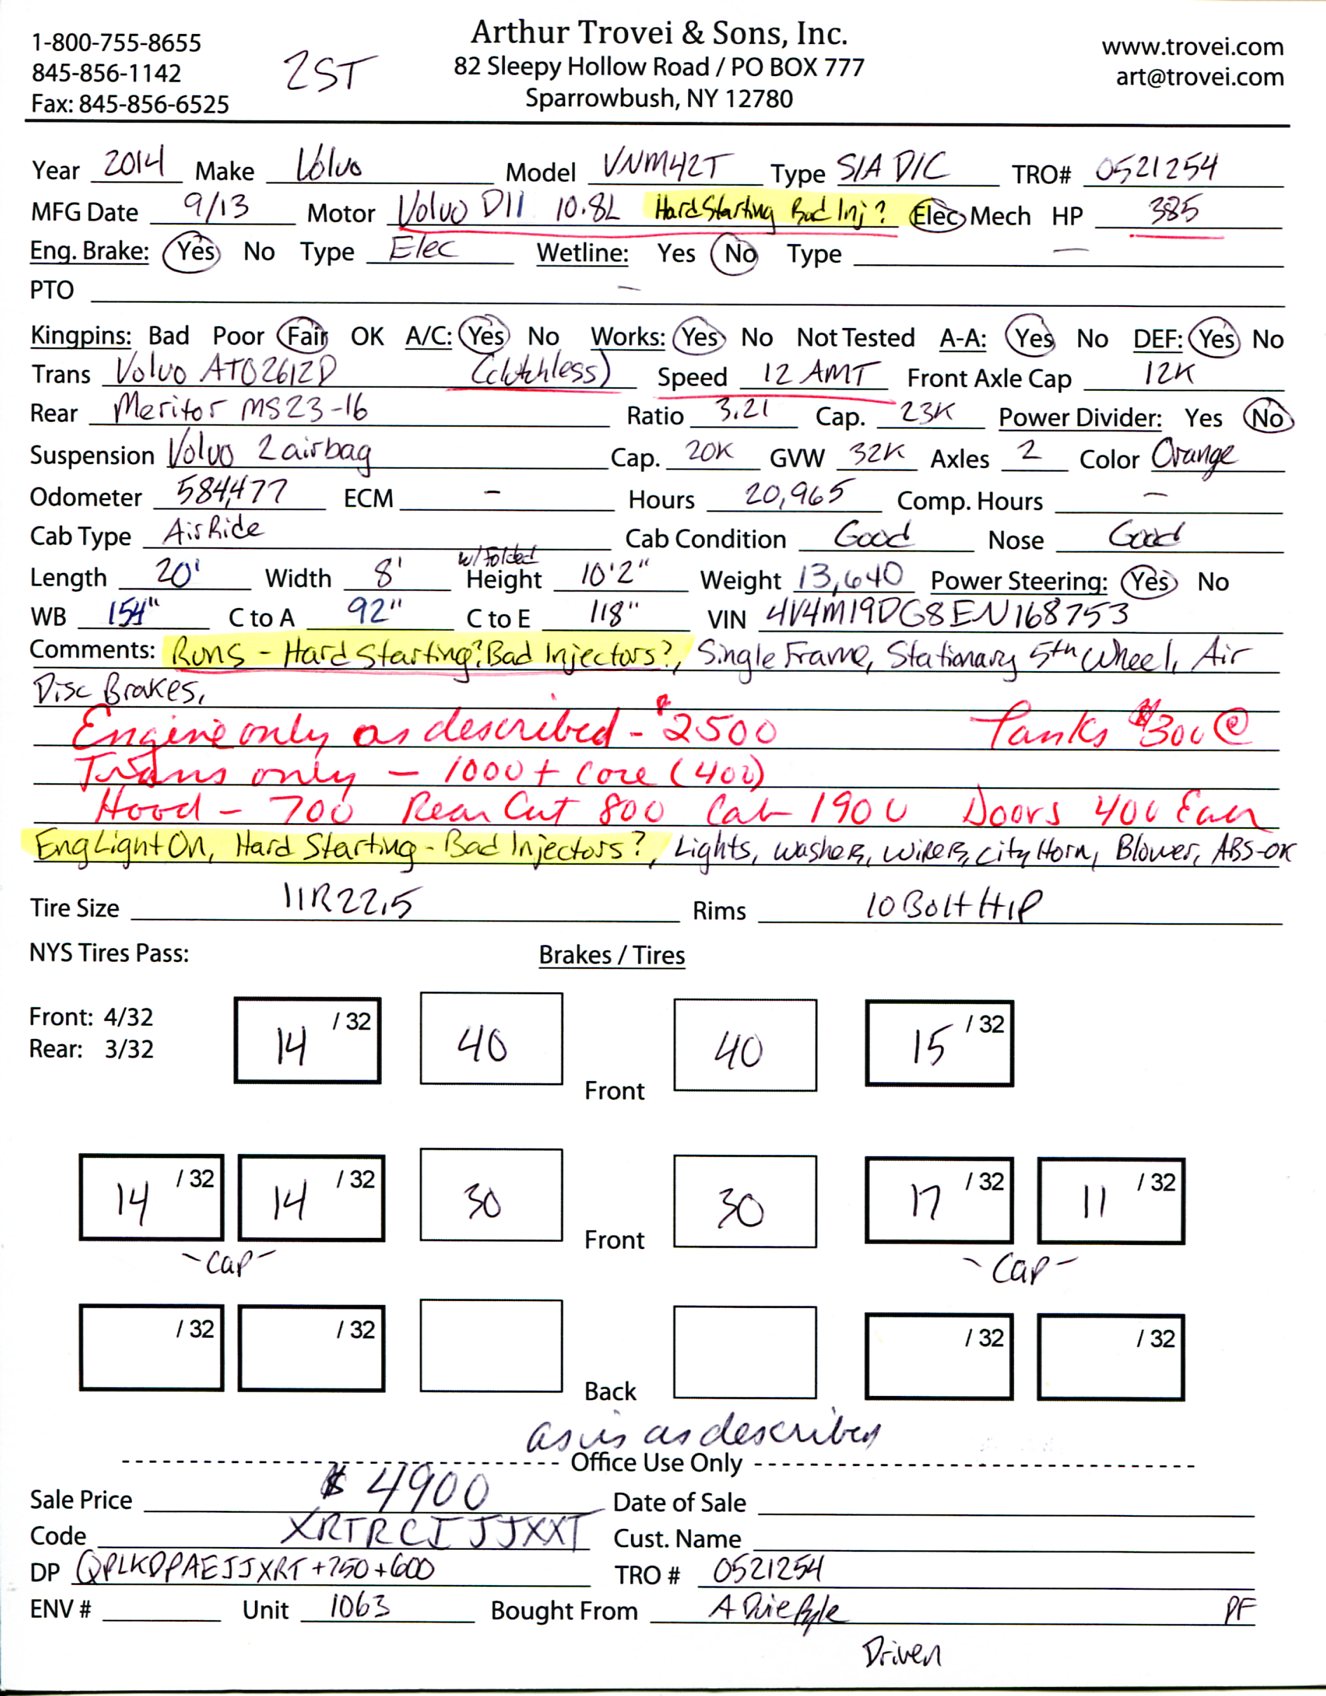 1-800-755-8655
845-856-1142
Fax: 845-856-6525
2ST
Arthur Trovei & Sons, Inc.
82 Sleepy Hollow Road / PO BOX 777
Sparrowbush, NY 12780
www.trovei.com
art@trovei.com
Year 2014 Make Volvo Model VNM42T Type S/A D/C TRO# 0521254
MFG Date 9/13 Motor Volvo D11 10.8L Hard Starting Bad Inj? Elec Mech HP 385
Eng. Brake: Yes No Type Elec Wetline: Yes No Type —
PTO —
Kingpins: Bad Poor Fair OK A/C: Yes No Works: Yes No Not Tested A-A: Yes No DEF: Yes No
Trans Volvo ATO2612D (clutchless) Speed 12 AMT Front Axle Cap 12K
Rear Meritor MS23-16 Ratio 3.21 Cap. 23K Power Divider: Yes No
Suspension Volvo 2 airbag Cap. 20K GVW 32K Axles 2 Color Orange
Odometer 584,477 ECM — Hours 20,965 Comp. Hours —
Cab Type Air Ride Cab Condition Good Nose Good
Length 20' Width 8' w/Folded Height 10'2" Weight 13,640 Power Steering: Yes No
WB 154" C to A 92" C to E 118" VIN 4V4M19DG8EN168753
Comments: Runs - Hard Starting? Bad Injectors?, Single Frame, Stationary 5th Wheel, Air
Disc Brakes,
Engine only as described - $2500 Tanks $300 @
Trans only - 1000 + core (400)
Hood - 700 Rear Cut 800 Cab 1900 Doors 400 Each
Eng Light On, Hard Starting - Bad Injectors?, Lights, washers, wipers, city Horn, Blower, ABS-OK
Tire Size 11R22.5 Rims 10 Bolt H/P
NYS Tires Pass: Brakes / Tires
Front: 4/32
Rear: 3/32
14 /32 40 Front 40 15 /32
14 /32 14 /32 30 Front 30 17 /32 11 /32
-Cap- -Cap-
/32 /32 Back /32 /32
as is as described
Office Use Only
Sale Price $4900 Date of Sale
Code XRTRCIJJXXT Cust. Name
DP QPLKDPAEJJXRT +750+600 TRO # 0521254
ENV # Unit 1063 Bought From A Duie Pyle PF
Driven